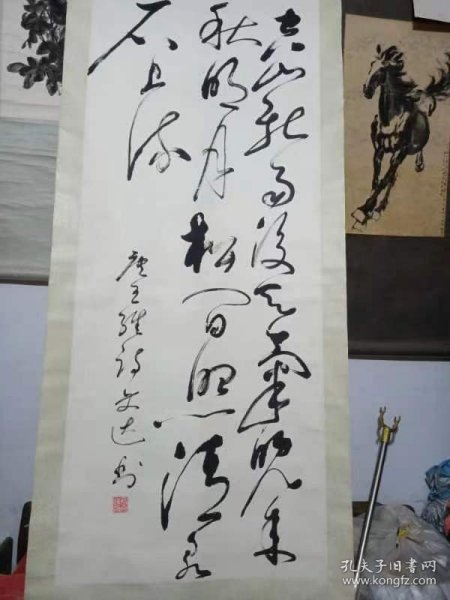 空山新雨后天气晚来
秋明月松间照清泉
石上流
唐王维诗文达书
孔夫子旧书网
www.kongfz.com